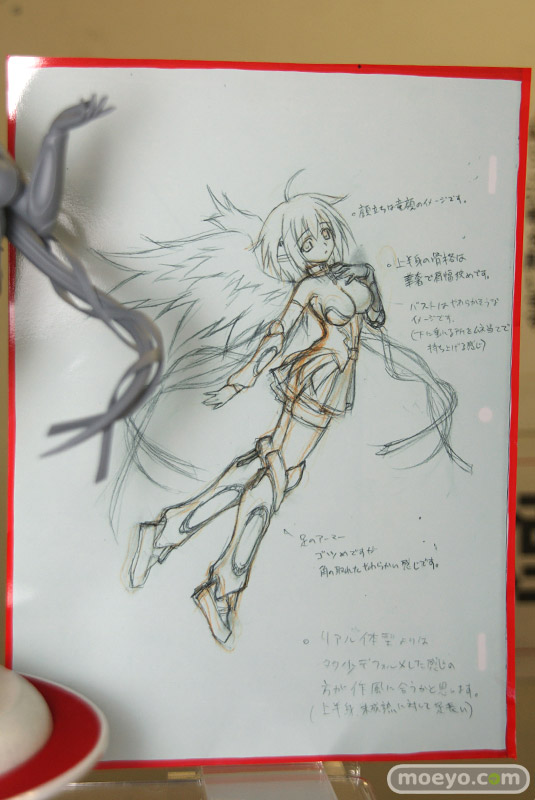 。顔立ちは童顔のイメージです。
。上半身の骨格は
華奢で肩幅狭めです。
バストはやわらかそうな
イメージです。
持ち上げる感じ)
足のアーマー
ゴツめですが
角の取れたやわらかい感じです。
。リアル体型よりは
多少デフォルメした感じの
方が作風に合うかと思います。
(上半身
moeyo.com